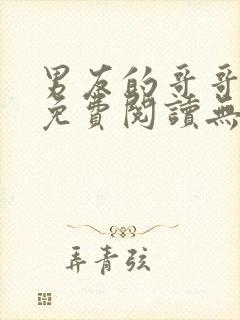 男友的哥哥
免費閱讀無
弄青弦